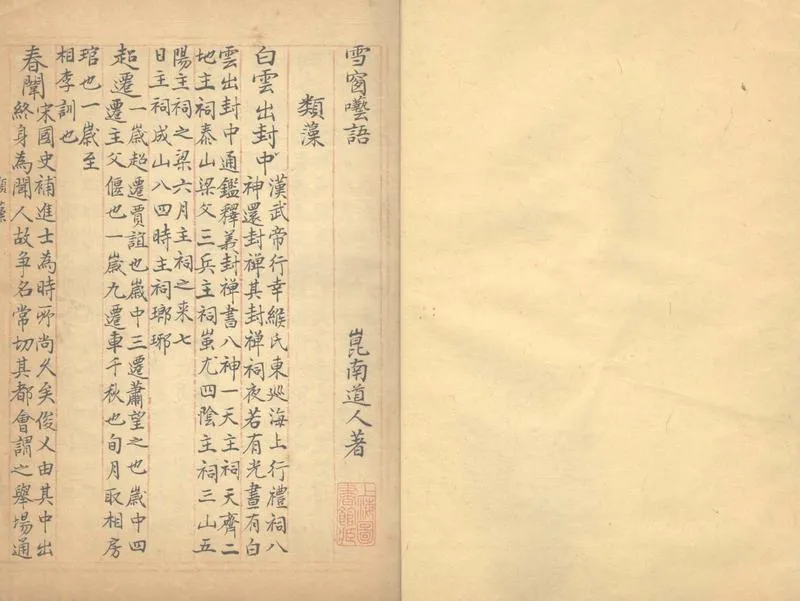 雪窗囈語
崑南道人著
上海圖書館藏
類藻
白雲出封中
漢武帝行幸緱氏東巡海上行禮祠八
神還封禅其封禅祠夜若有光晝有白
雲出封中通鑑釋義封禅書八神一天主祠天齊二
地主祠泰山梁父三兵主祠蚩尤四陰主祠三山五
陽主祠之梁六月主祠之来七
日主祠成山八四時主祠瑯琊
超遷
一歲超遷賈誼也歲中三遷蕭望之也歲中四
遷主父偃也一歲九遷車千秋也旬月取相房
琯也一歲至
相李訓也
春闈
宋國史補進士為時所尚久矣俊乂由其中出
終身為聞人故争名常切其都會謂之舉場通
類藻